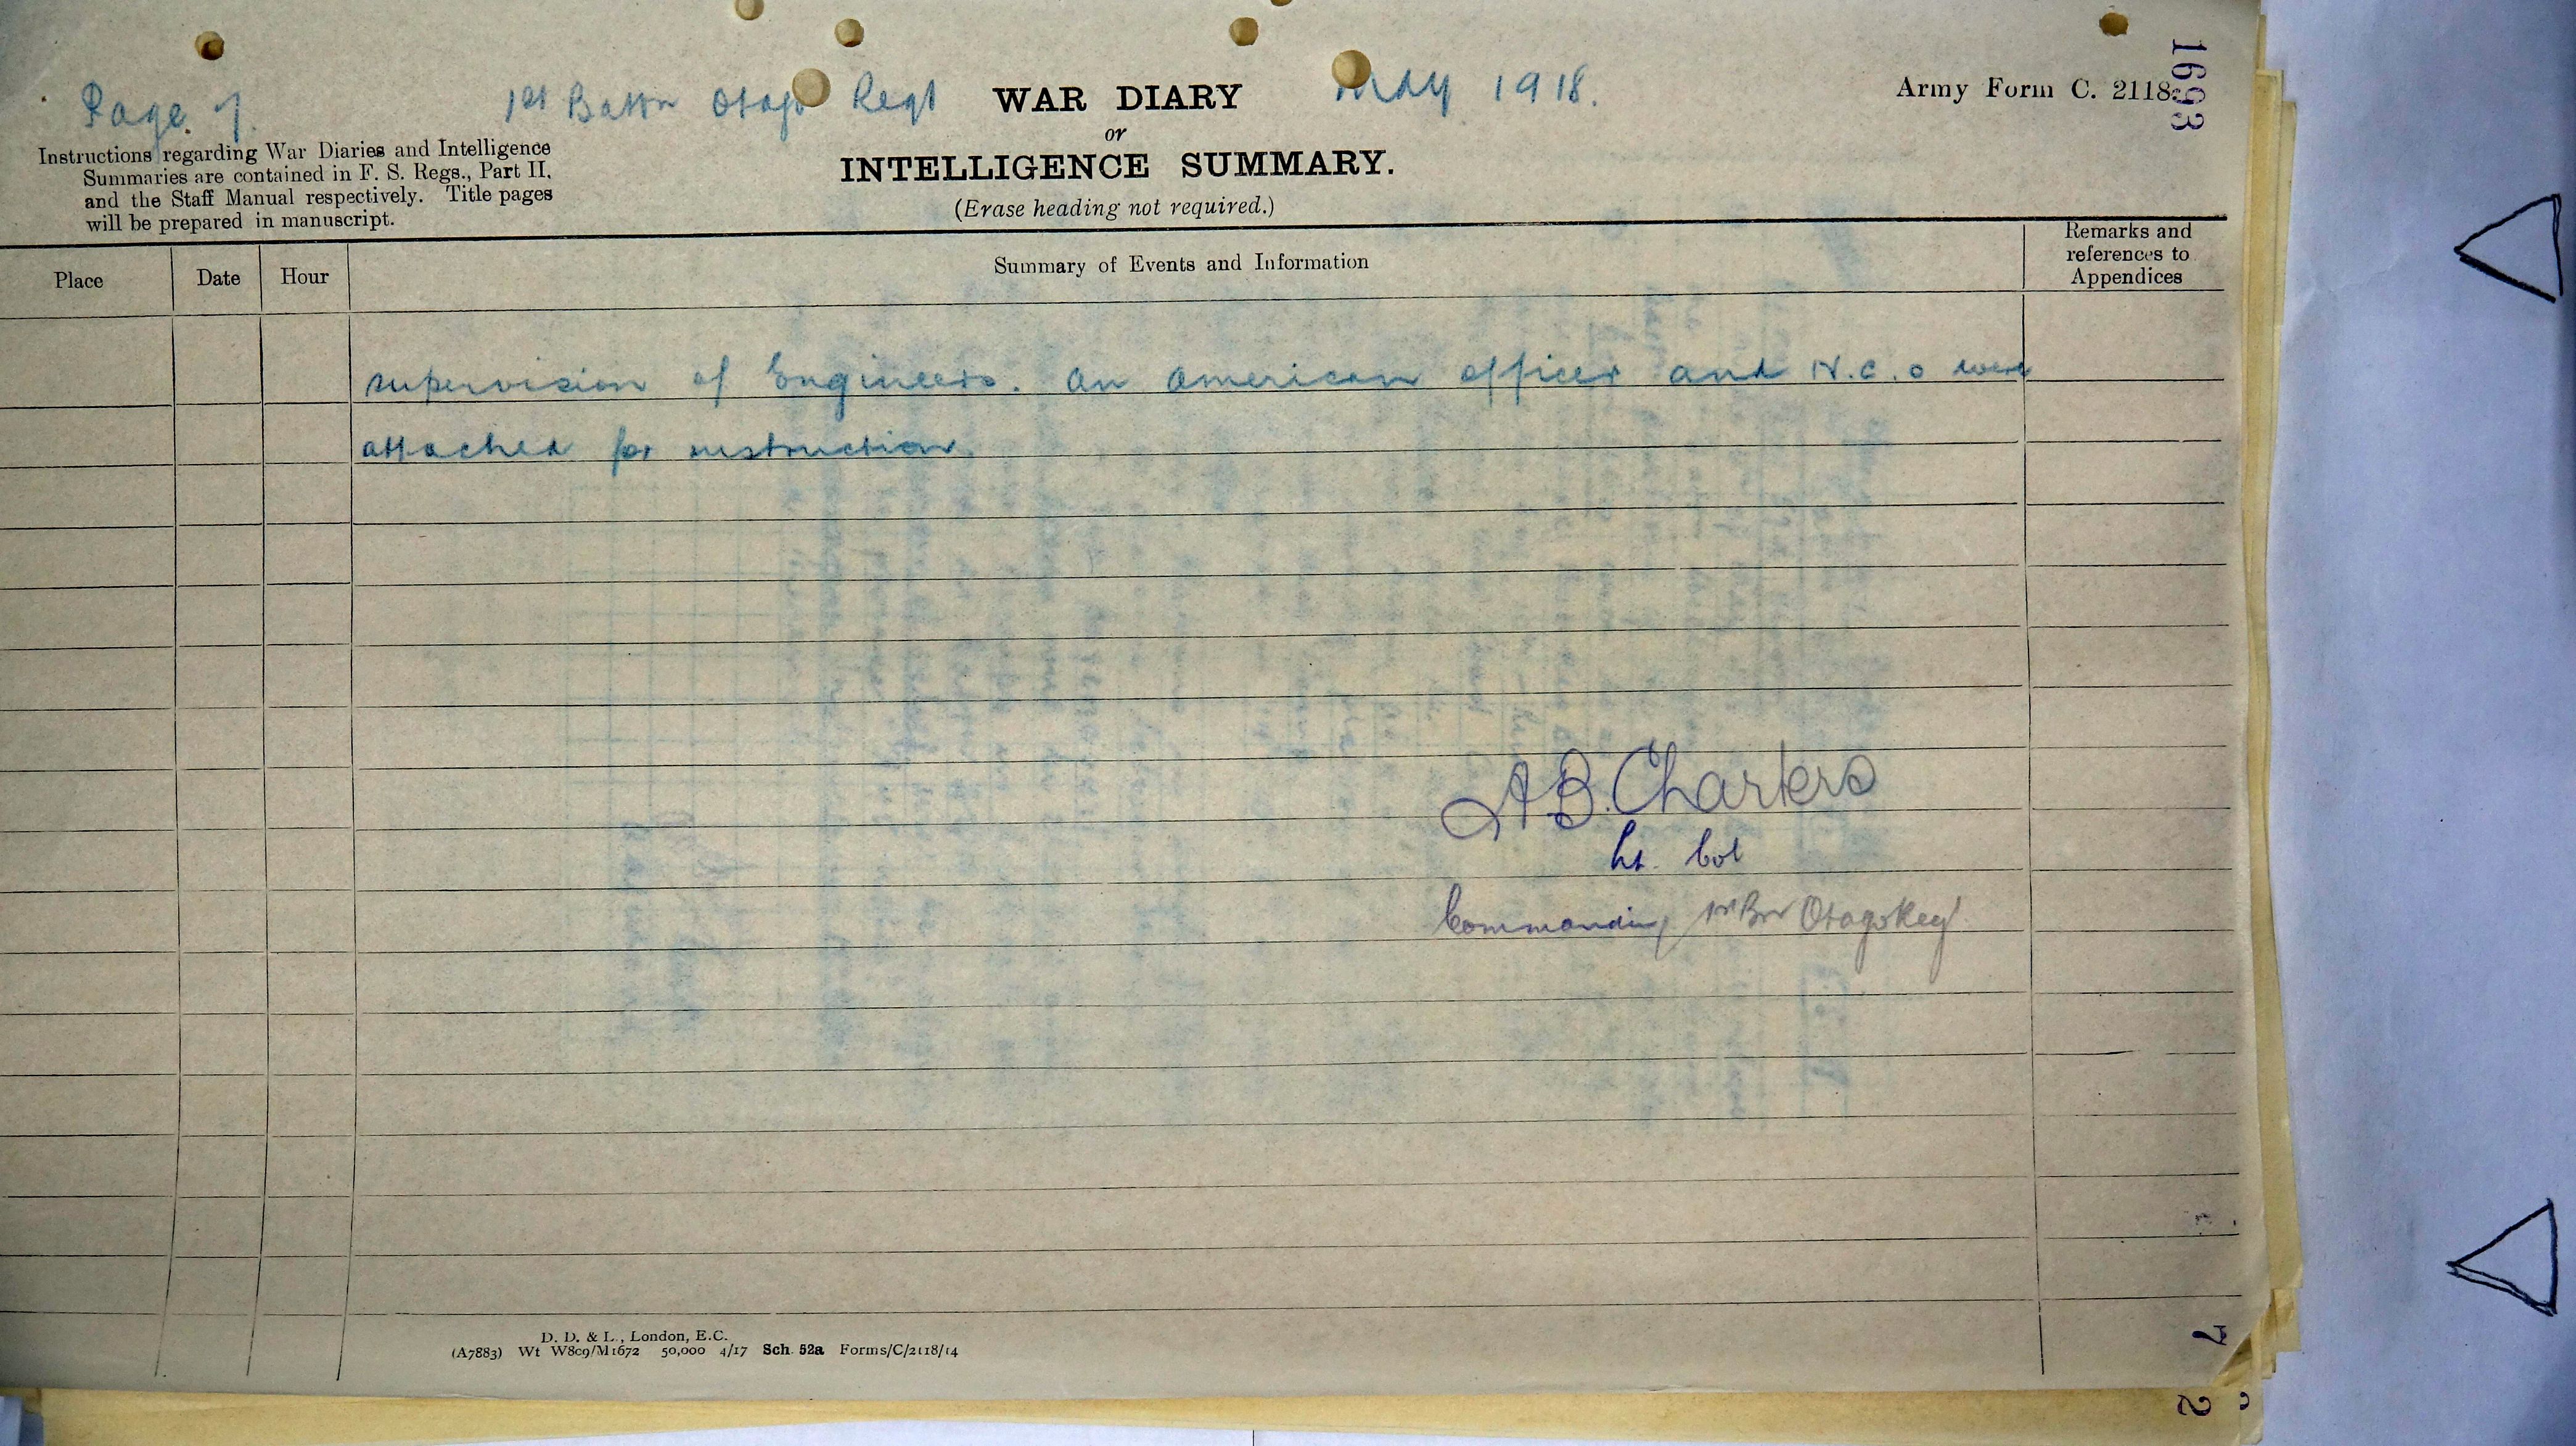 Page 7.
1st Battn Otago Regt
WAR DIARY
May 1918.
Army Form C. 2118.
1693
or
INTELLIGENCE SUMMARY.
(Erase heading not required.)
Instructions regarding War Diaries and Intelligence
Summaries are contained in F. S. Regs., Part II,
and the Staff Manual respectively. Title pages
will be prepared in manuscript.
Place
Date
Hour
Summary of Events and Information
Remarks and
references to
Appendices
supervision of Engineers. An American officer and N.C.O were
attached for instruction
A B. Charters
Lt. Col
Commanding 1st Bn Otago Reg
D. D. & L., London, E.C.
(A7883) Wt W809/M1672 50,000 4/17 Sch. 52a Forms/C/2118/14
7
2